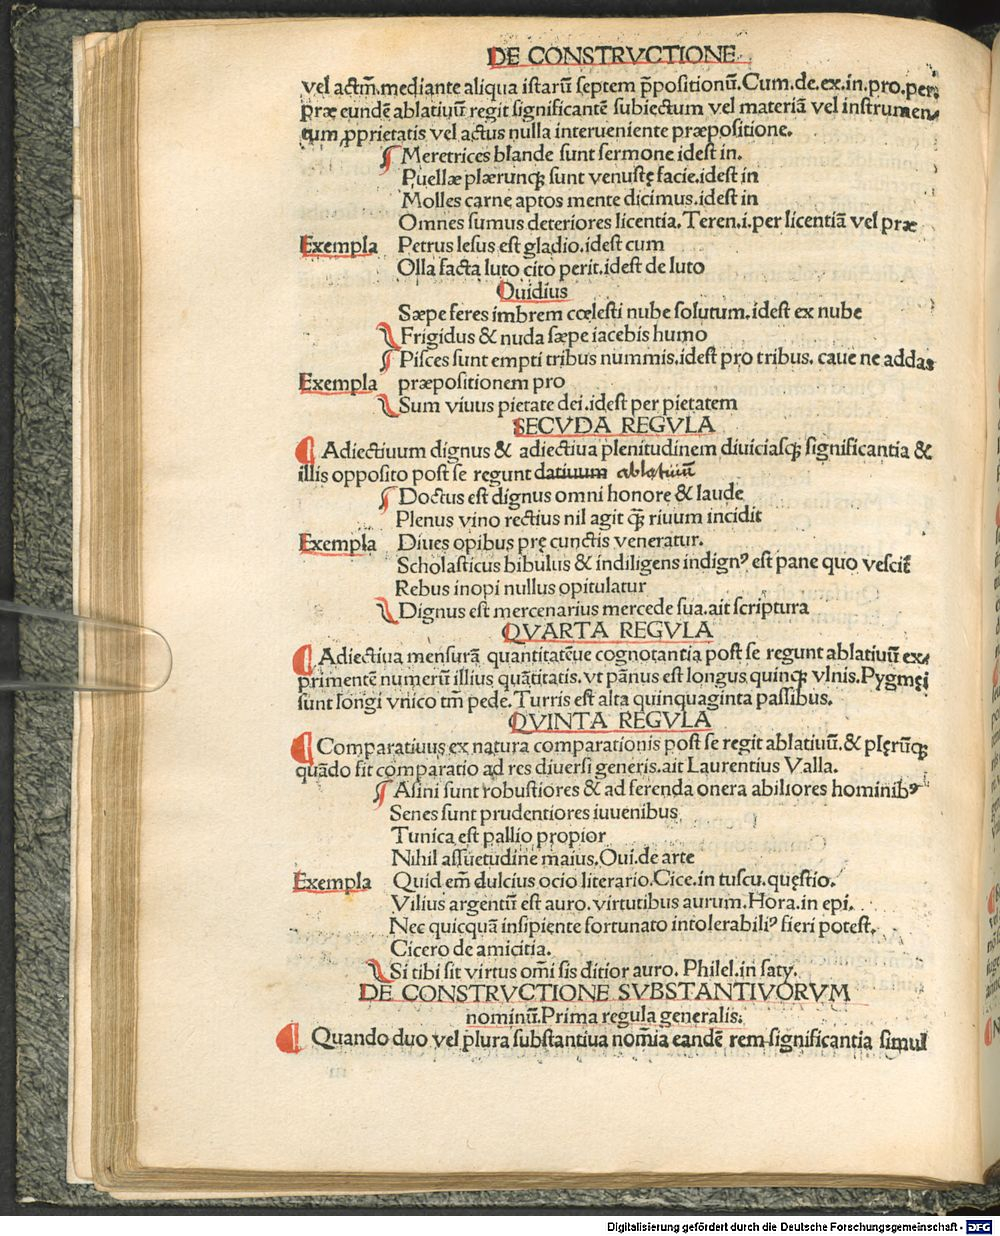 DE CONSTRVCTIONE
vel actm̄.mediante aliqua istarū septem p̄positionū.Cum.de.ex.in.pro.per.
præ eundē ablatiuū regit significantē subiectum vel materiā vel instrumen⸗
tum ꝓprietatis vel actus nulla interueniente præpositione.
Meretrices blande sunt sermone idest in.
Puellæ plærunqꝫ sunt venustę facie.idest in
Molles carne aptos mente dicimus.idest in
Omnes sumus deteriores licentia. Teren.i.per licentiā vel præ
Exempla Petrus lesus est gladio.idest cum
Olla facta luto cito perit.idest de luto
Ouidius
Sæpe feres imbrem cœlesti nube solutum.idest ex nube
Frigidus & nuda sæpe iacebis humo
Pisces sunt empti tribus nummis.idest pro tribus. caue ne addas
Exempla præpositionem pro
Sum viuus pietate dei.idest per pietatem
SECVDA REGVLA
Adiectiuum dignus & adiectiua plenitudinem diuiciasqꝫ significantia &
illis opposito post se regunt datiuum ablatiuū
Doctus est dignus omni honore & laude
Plenus vino rectius nil agit qꝫ̄ riuum incidit
Exempla Diues opibus prę cunctis veneratur.
Scholasticus bibulus & indiligens indignꝰ est pane quo vescit̄
Rebus inopi nullus opitulatur
Dignus est mercenarius mercede sua.ait scriptura
QVARTA REGVLA
Adiectiua mensurā quantitatēue cognotantia post se regunt ablatiuū ex⸗
primentē numerū illius quātitatis.vt pānus est longus quinqꝫ vlnis.Pygmęi
sunt longi vnico tm̄ pede.Turris est alta quinquaginta passibus.
QVINTA REGVLA
Comparatiuus ex natura comparationis post se regit ablatiuū.& plęrūqꝫ
quādo fit comparatio ad res diuersi generis.ait Laurentius Valla.
Asini sunt robustiores & ad ferenda onera abiliores hominibꝰ
Senes sunt prudentiores iuuenibus
Tunica est pallio propior
Nihil assuetudine maius.Oui.de arte
Exempla Quid em̄ dulcius ocio literario.Cice.in tuscu.quęstio.
Vilius argentū est auro.virtutibus aurum.Hora.in epi.
Nec quicquā insipiente fortunato intolerabiliꝰ fieri potest.
Cicero de amicitia.
Si tibi sit virtus om̄i sis ditior auro. Philel.in saty.
DE CONSTRVCTIONE SVBSTANTIVORVM
nominū.Prima regula generalis.
Quando duo vel plura substantiua nom̄ia eandē rem significantia simul
Digitalisierung gefördert durch die Deutsche Forschungsgemeinschaft - DFG